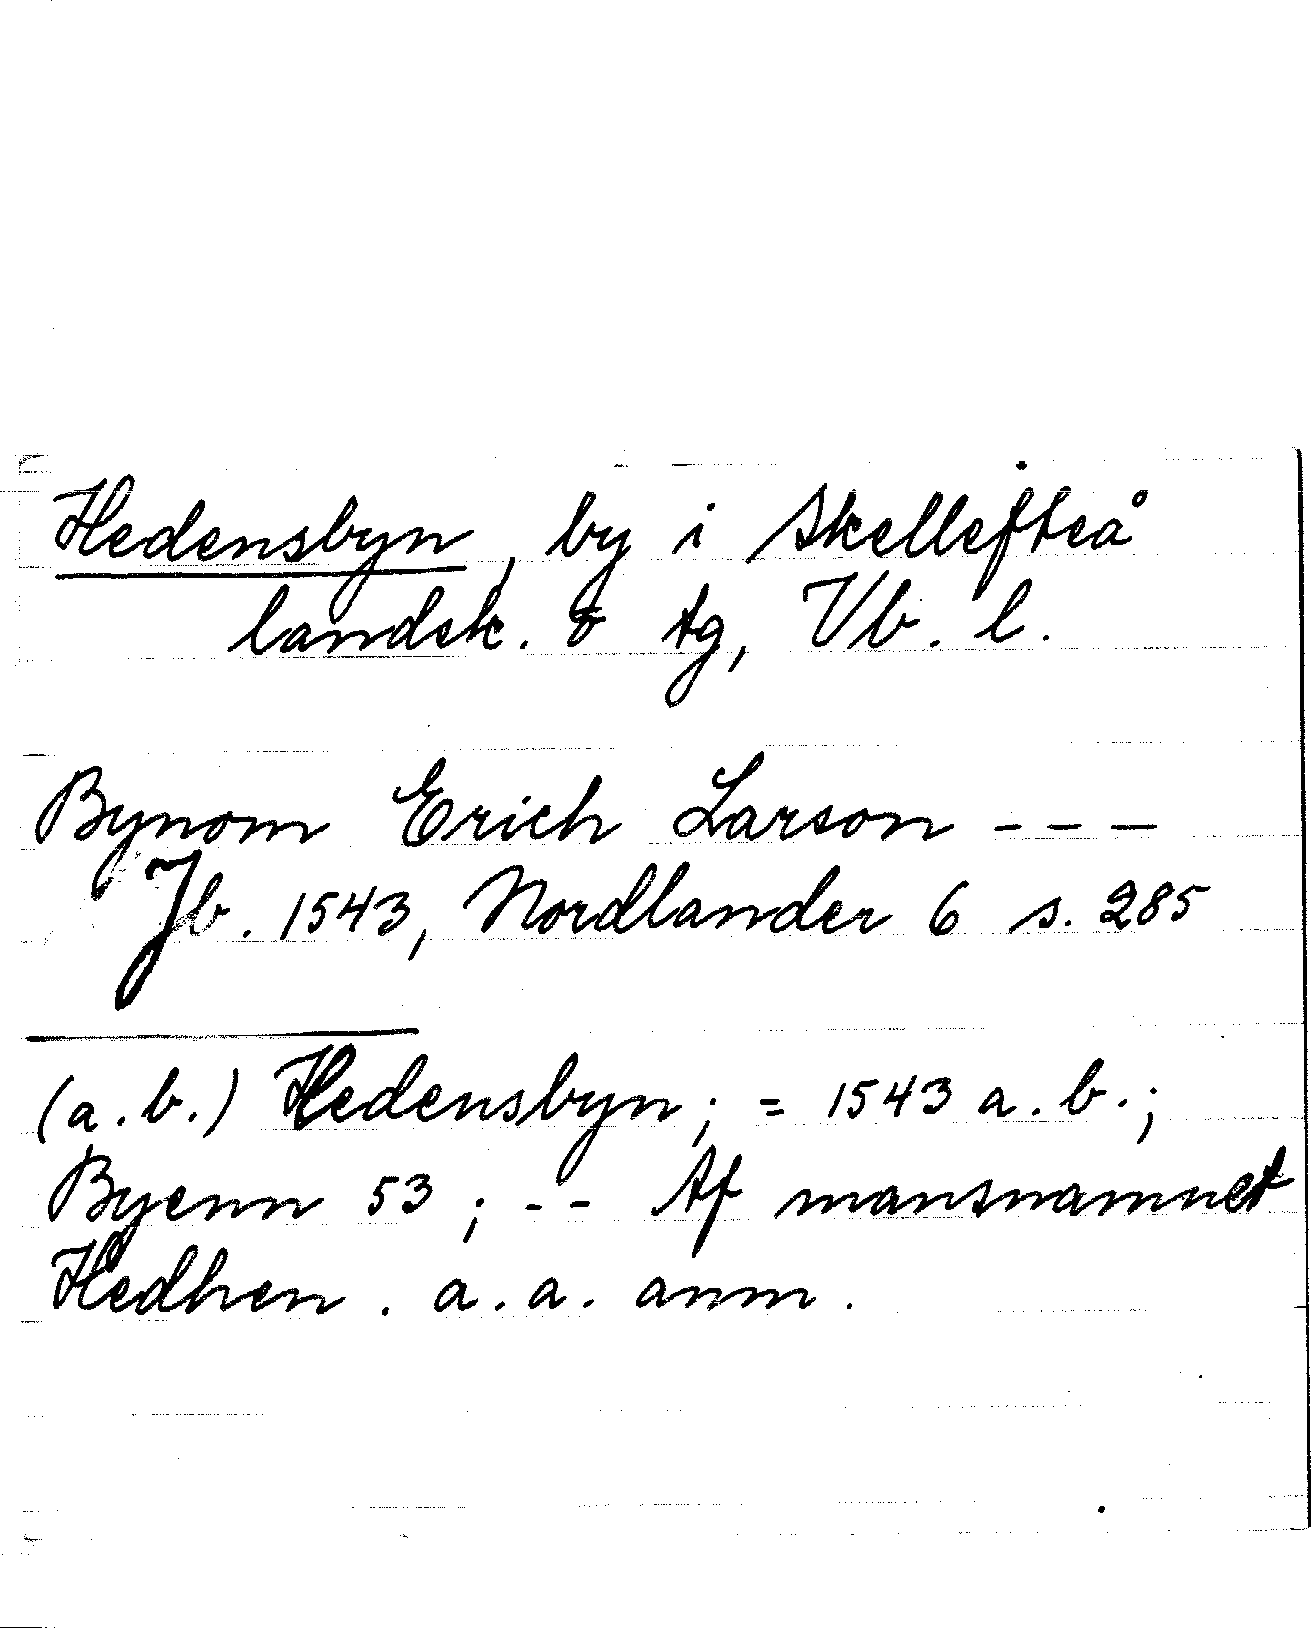 Hedensbyn, by i Skellefteå
landsk. o tg, Vb. l.
Bynom Erich Larson ---
Jb. 1543, Nordlander 6 s. 285
(a.b.) Hedensbyn; = 1543 a.b.;
Byenn 53; -- Af mansnamnet
Hedhen. a.a. anm.